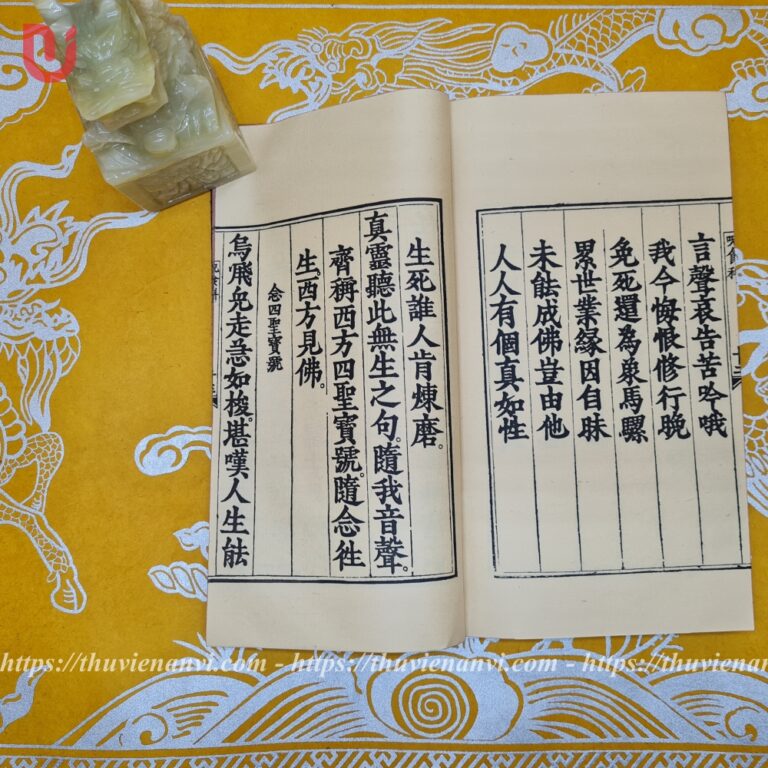 言聲哀告苦吟哦
我今悔恨修行晚
免死還為象馬騾
累世業緣因自昧
未䏻成佛豈由他
人人有個真如性
生死誰人肯煉磨。
真靈聽此無生之句。隨我音聲。
齊稱西方四聖寶號。隨念徃
生。西方見佛。
念四聖寶號
烏飛兔走急如梭。堪嘆人生䏻
https://thuvienanvi.com - https://thuvienanvi.com - https://thuvienanvi